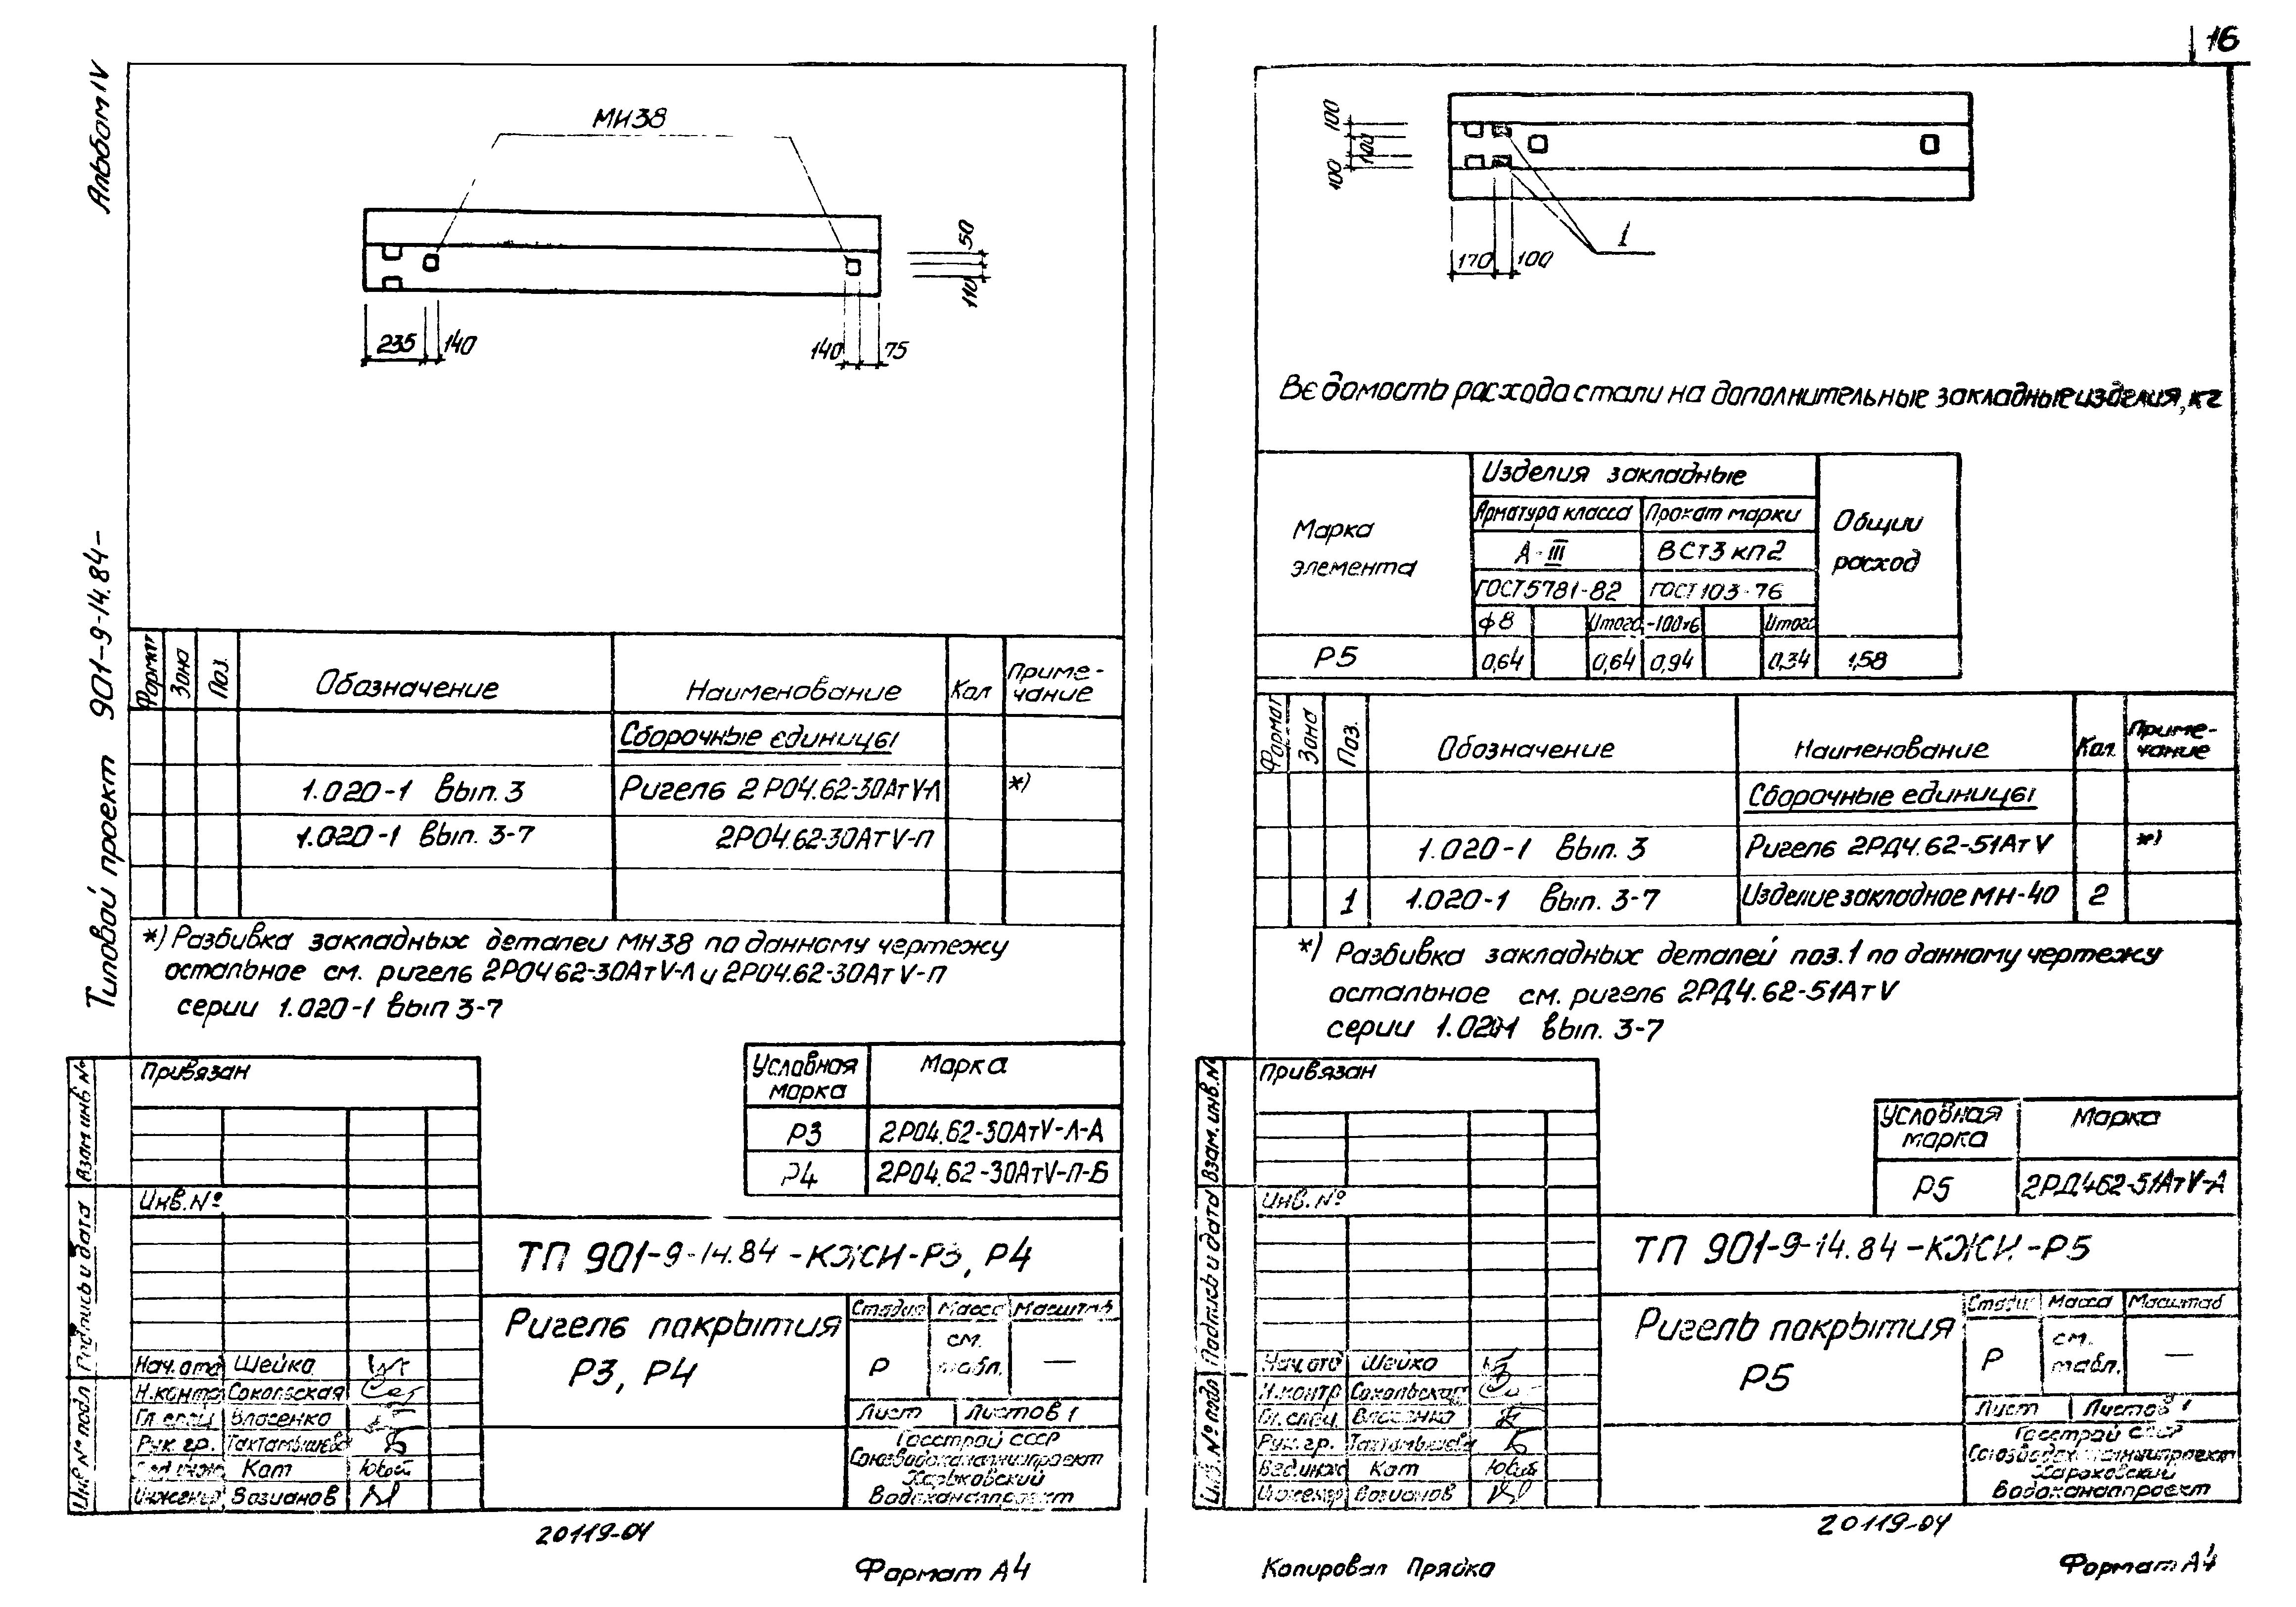 Альбом IV
Типовой проект 901-9-14.84-
МН38
50
110
235 140
140 75
Формат Зона Поз. Обозначение Наименование Кол Приме-
чание
Сборочные единицы
1.020-1 вып. 3 Ригель 2Р04.62-30АтV-Л *)
1.020-1 вып. 3-7 2Р04.62-30АтV-П
*) Разбивка закладных деталей МН38 по данному чертежу
остальное см. ригель 2Р04 62-30АтV-Л и 2Р04.62-30АтV-П
серии 1.020-1 вып 3-7
Условная
марка Марка
Р3 2Р04.62-30АтV-Л-А
Р4 2Р04.62-30АтV-П-Б
Привязан
Инв. №
Взам инв №
Подпись и дата
Инв № подл
ТП 901-9-14.84-КЖИ-Р3, Р4
Ригель покрытия
Р3, Р4
Стадия Масса Масштаб
Р см.
табл. —
Лист Листов 1
Нач. отд Шейко
Н.контр Сокольская
Гл. спец Власенко
Рук. гр. Тахтамышева
Вед.инж Кот
Инженер Возианов
Госстрой СССР
Союзводоканалниипроект
Харьковский
Водоканалпроект
20119-04
Формат А4
16
100
100
100
170 100
1
Ведомость расхода стали на дополнительные закладные изделия, кг
Марка
элемента
Изделия закладные
Арматура класса Прокат марки
А-III ВСт3кп2
ГОСТ 5781-82 ГОСТ 103-76
Общий
расход
ф8 Итого -100х6 Итого
Р5 0,64 0,64 0,94 0,34 1,58
Формат Зона Поз. Обозначение Наименование Кол. Приме-
чание
Сборочные единицы
1.020-1 вып. 3 Ригель 2РД4.62-51АтV *)
1 1.020-1 вып. 3-7 Изделие закладное МН-40 2
*) Разбивка закладных деталей поз.1 по данному чертежу
остальное см. ригель 2РД4.62-51АтV
серии 1.020-1 вып. 3-7
Условная
марка Марка
Р5 2РД462-51АтV-А
Привязан
Инв. №
Взам. инв. №
Подпись и дата
Инв. № подл
ТП 901-9-14.84-КЖИ-Р5
Ригель покрытия
Р5
Стадия Масса Масштаб
Р см.
табл. —
Лист Листов 1
Нач. отд Шейко
Н.контр Сокольская
Гл. спец. Власенко
Рук. гр. Тахтамышева
Вед.инж Кот
Инженер Возианов
Госстрой СССР
Союзводоканалниипроект
Харьковский
Водоканалпроект
20119-04
Копировал Прядка
Формат А4